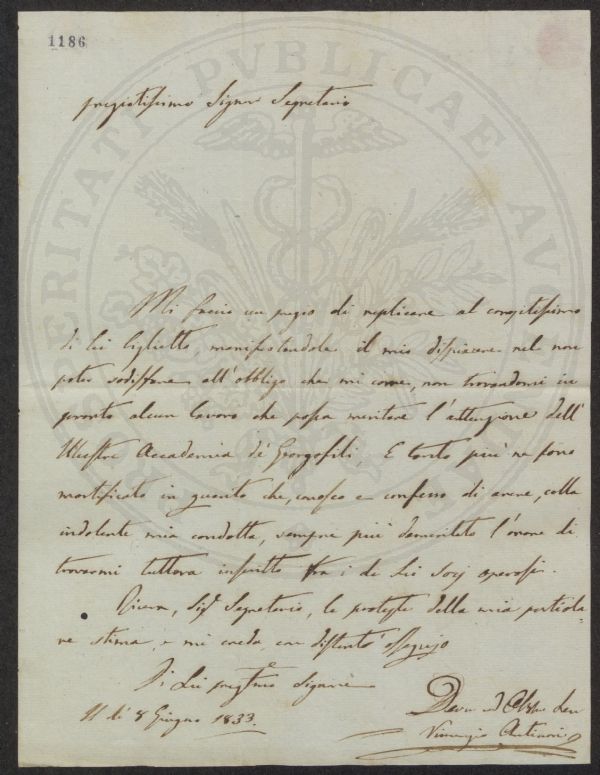 1186
PROSPERITATI PVBLICAE AVGENDAE
pregiatissimo Signor Segretario
Mi faccio un pregio di replicare al compitissimo
di Lei biglietto, manifestandole il mio dispiacere nel non
poter sodisfare all'obbligo che mi corre, non trovandomi in
pronto alcun lavoro che possa meritare l'attenzione dell'
Illustre Accademia de' Georgofili. E tanto più ne sono
mortificato in quanto che, conosco e confesso di avere, colla
indolente mia condotta, sempre più demeritato l'onore di
trovarmi tuttora inscritto tra i de Lei Socj operosi.
Riceva, Sigr Segretario, le proteste della mia particola
re stima, e mi creda, con distinto ossequio
Di Lei pregmo Signore
Li 8 Giugno 1833.
Devmo ed Obbmo Serv
Vincenzio Antinori